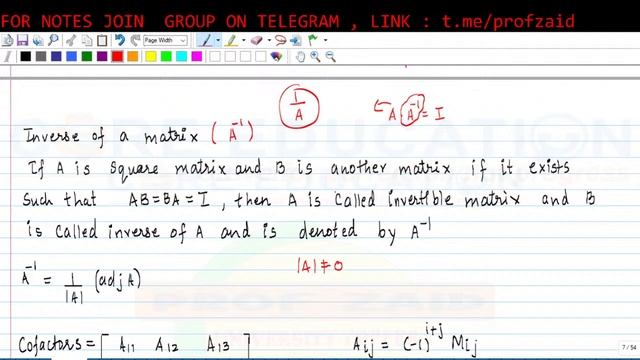 FOR NOTES JOIN GROUP ON TELEGRAM , LINK : t.me/profzaid
Page Width
1/A
A A⁻¹ = I
Inverse of a matrix (A⁻¹)
If A is square matrix and B is another matrix if it exists
such that AB=BA=I, then A is called invertible matrix and B
is called inverse of A and is denoted by A⁻¹
|A|≠0
A⁻¹ = 1/|A| (adj A)
PROF ZAID
Cofactors = [ A₁₁ A₁₂ A₁₃ ] Aᵢⱼ = (-1)ⁱ⁺ʲ Mᵢⱼ
7 / 54